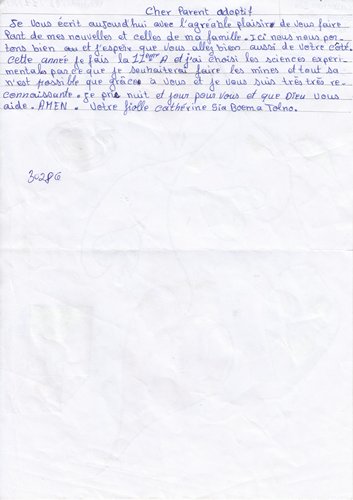 Cher Parent adoptif
Je vous écrit aujourd'hui avec l'agréable plaisir de vous faire
Part de mes nouvelles et celles de ma famille. Ici nous nous por-
tons bien ou et j'espère que vous allez bien aussi de votre côté.
Cette année je fais la 11ème A et j'ai choisi les sciences experi-
mentales pas ce que je souhaiterai faire les mines et tout sa
n'est possible que grâce à vous et je vous suis très très re-
connaissante. Je prie nuit et jour pour vous et que Dieu vous
aide. AMEN. Votre fiolle Cathérine Sia Boema Tolno.
302PG